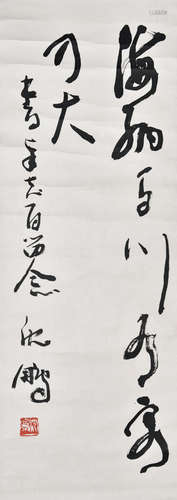 海納百川有容
乃大
書奉志百留念 沈鵬